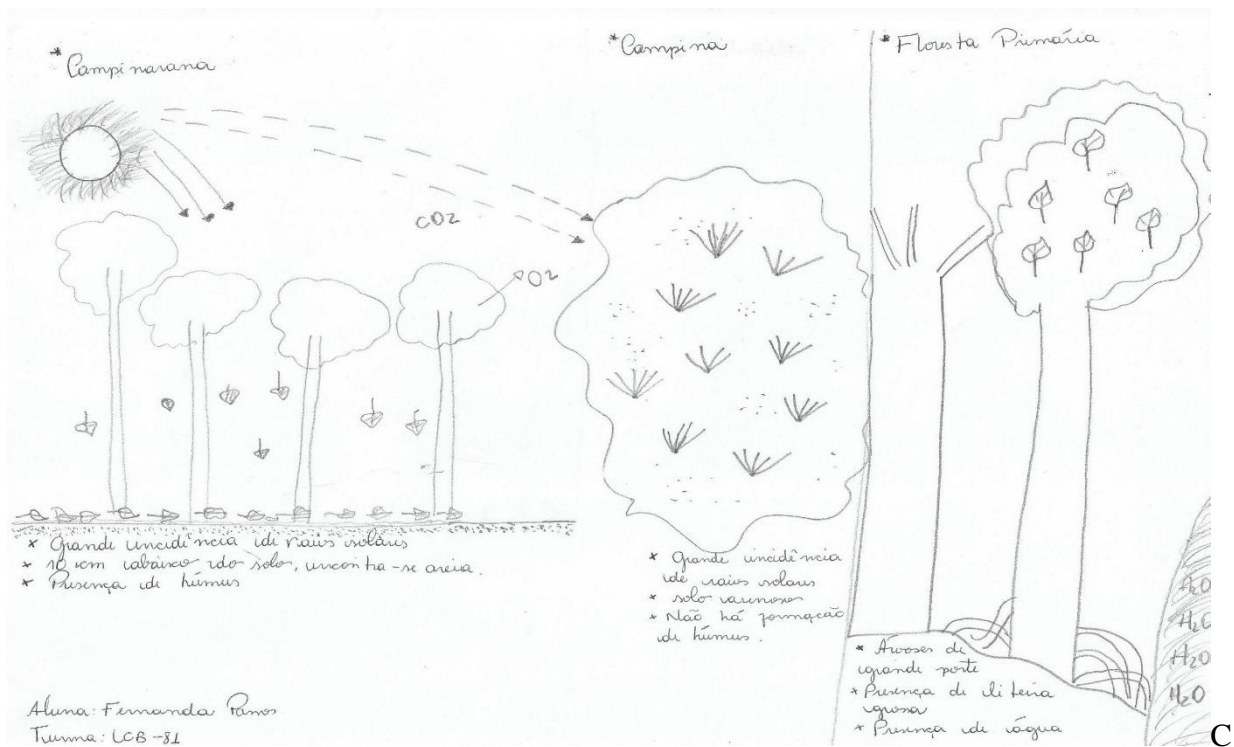 * Campinarana
CO2
O2
* Grande incidência de raios solares
* 10 cm abaixo do solo, encontra-se areia.
* Presença de húmus
Aluna: Fernanda Ramos
Turma: LCB-81
* Campina
* Grande incidência
de raios solares
* solo arenoso
* Não há formação
de húmus.
* Floresta Primária
* Árvores de
grande porte
* Presença de liteira
grossa
* Presença de água
H2O
H2O
H2O
H2O
C